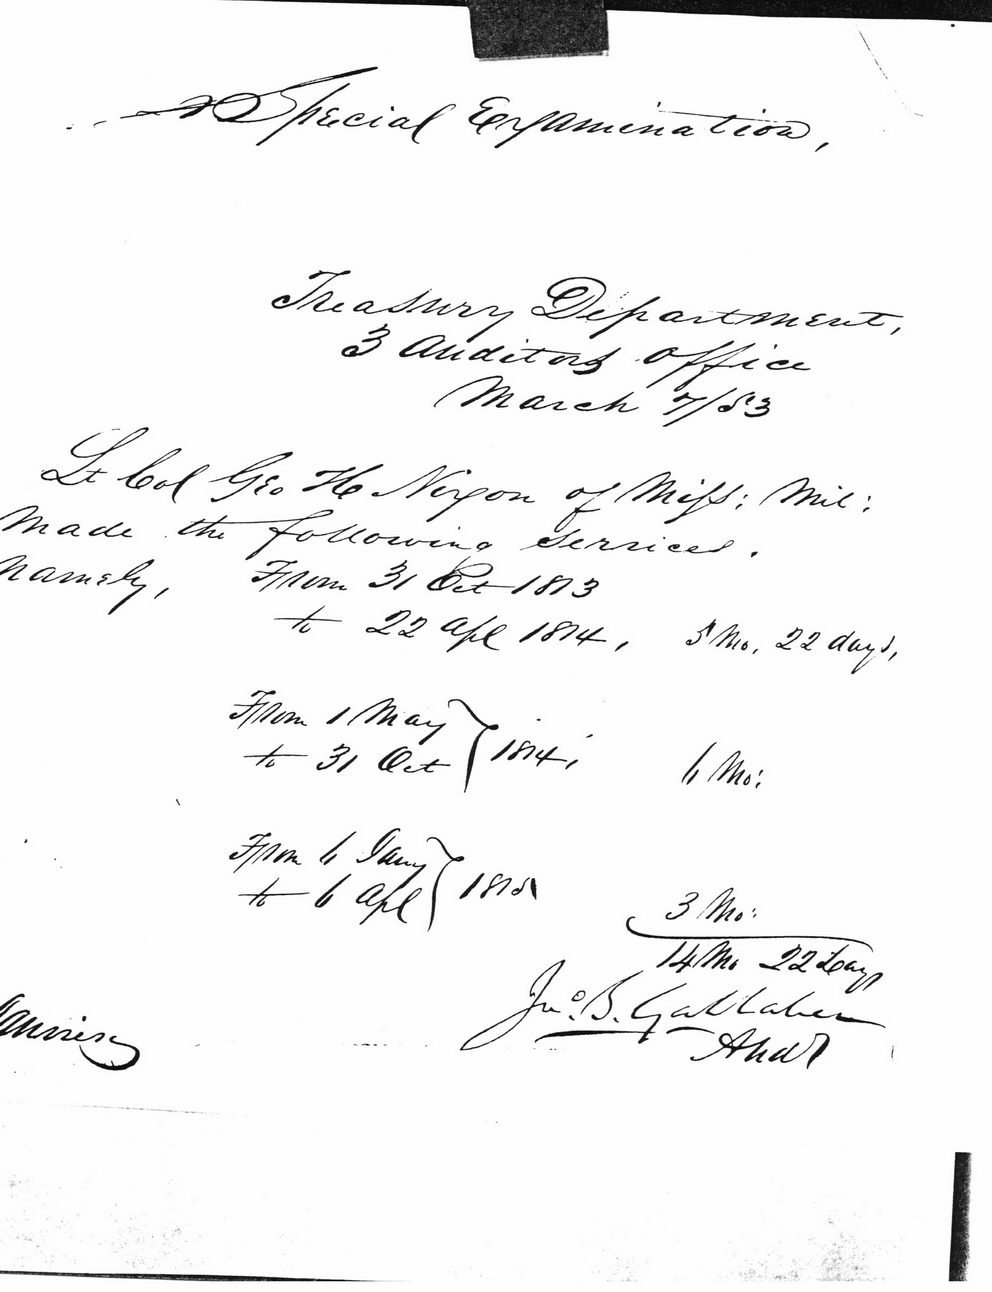 Special Examination,
Treasury Department,
3 Auditors Office
March 7/53
Lt Col Geo H Nixon of Miss: Mil:
made the following services.
Namely, From 31 Oct 1813
to 22 Apl 1814, 5 Mo. 22 days,
From 1 May
to 31 Oct } 1814, 6 Mo:
From 6 Jany
to 6 Apl } 1815 3 Mo:
14 Mo 22 Days
Jno. B. Gallaher
Audr